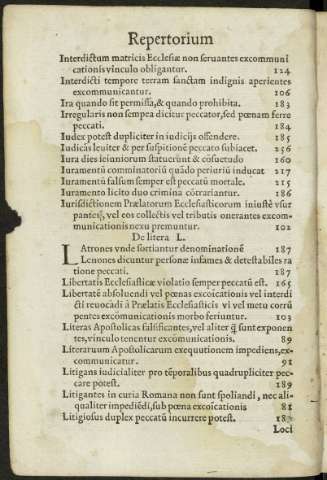 Repertorium
Interdictum matricis Ecclesiæ non seruantes excommuni
cationis vinculo obligantur. 124
Interdicti tempore terram sanctam indignis aperientes
excommunicantur. 106
Ira quando sit permissa, & quando prohibita. 183
Irregularis non sempea dicitur peccator, sed pœnam ferre
peccati. 184
Iudex potest dupliciter in iudicijs offendere. 185
Iudicās leuiter & per suspitionē peccato subiacet. 256
Iura dies ieiuniorum statuerunt & cōsuetudo 160
Iuramentū comminatoriū quādo periuriū inducat 217
Iuramentū falsum semper est peccatū mortale. 215
Iuramento licito duo crimina cōtrariantur. 186
Iurisdictionem Prælatorum Ecclesiasticorum iniustè vsur
pantes, vel eos collectis vel tributis onerantes excom-
municationis nexu premuntur. 102
De litera L.
LAtrones vnde sortiantur denominationē 187
Lenones dicuntur personæ infames & detestabiles ra
tione peccati. 187
Libertatis Ecclesiasticæ violatio semper peccatū est. 165
Libertatē absoluendi vel pœnas excōicationis vel interdi
cti reuocādi à Prælatis Ecclesiasticis vi vel metu corrū
pentes excōmunicationis morbo feriuntur. 103
Literas Apostolicas falsificantes, vel aliter q̄ sunt exponen
tes, vinculo tenentur excōmunicationis. 89
Literaruum Apostolicarum exequutionem impediens, ex-
communicatur. 91
Litigans iudicialiter pro tēporalibus quadrupliciter pec-
care potest. 189
Litigantes in curia Romana non sunt spoliandi, nec ali-
qualiter impediēdi, sub pœna excoicationis 81
Litigiosus duplex peccatū incurrere potest.
Loci